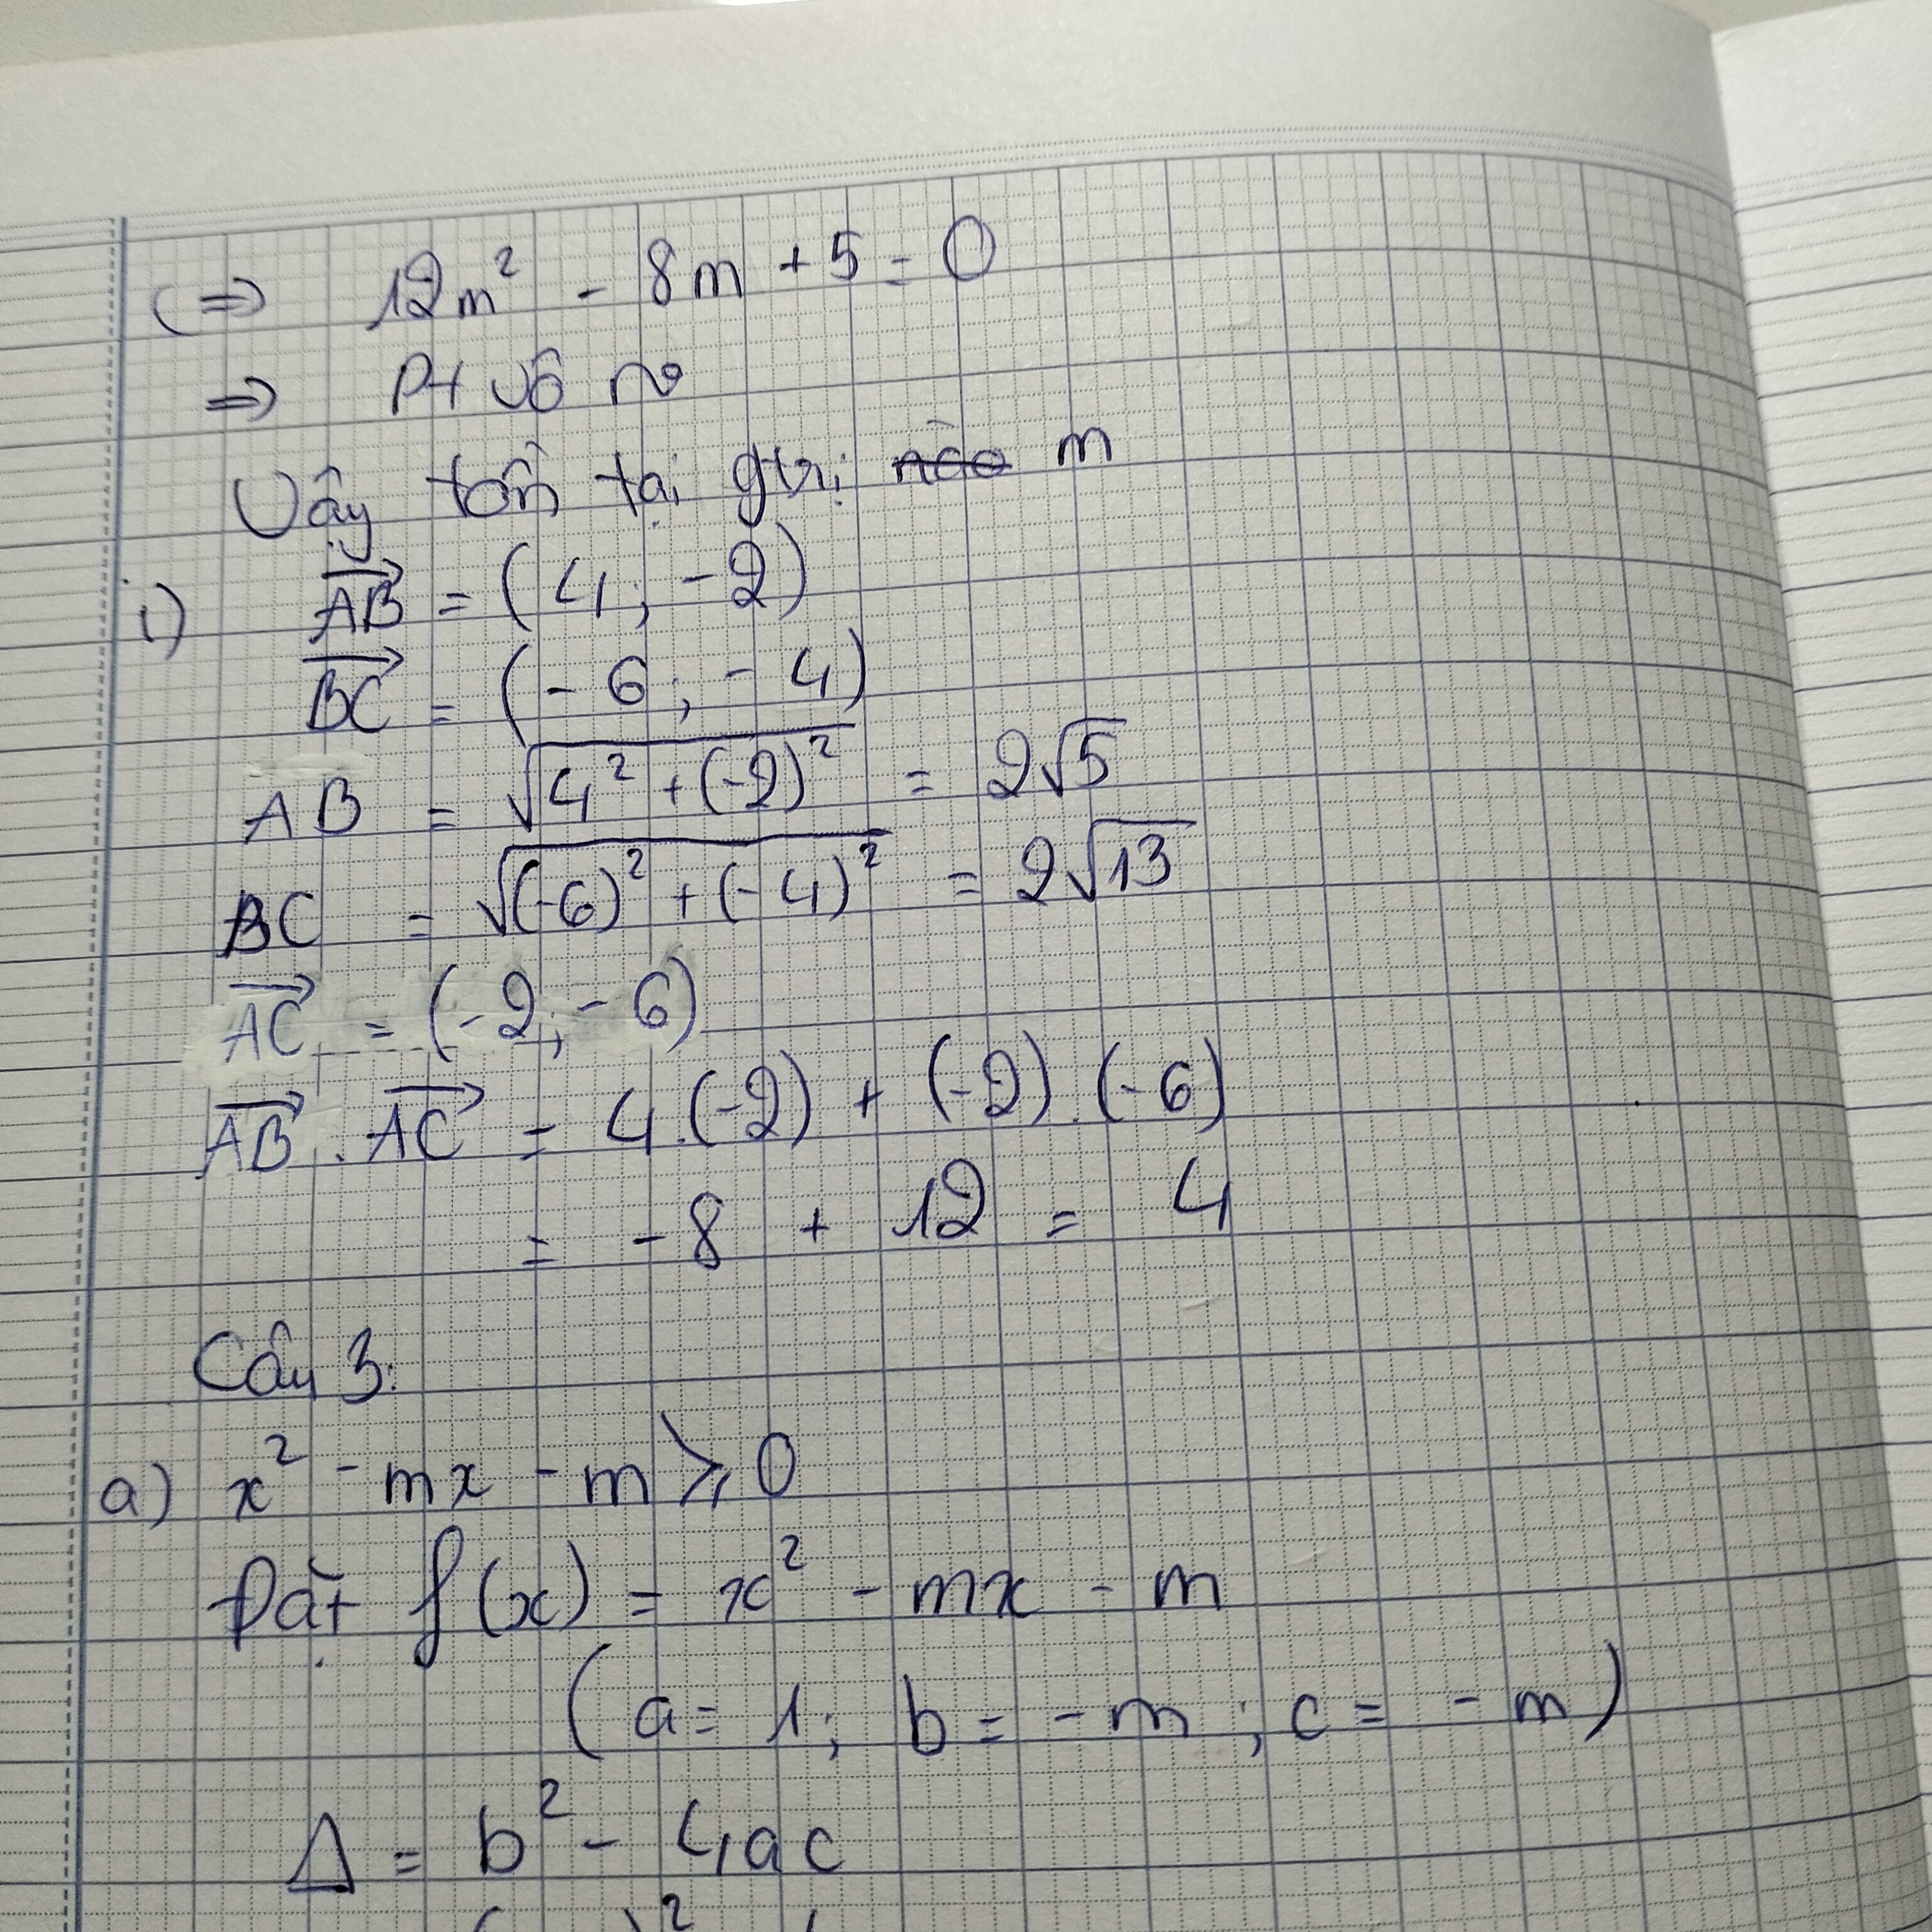 <=> 12m² - 8m + 5 = 0
=> Pt vô no
Vậy tồn tại gtrị nào m
i) AB = (4; -2)
BC = (-6; -4)
AB = √(4² + (-2)²) = 2√5
BC = √((-6)² + (-4)²) = 2√13
AC = (-2; -6)
AB . AC = 4.(-2) + (-2).(-6)
= -8 + 12 = 4
Câu 3:
a) x² - mx - m ⩾ 0
Đặt f(x) = x² - mx - m
(a = 1; b = -m; c = -m)
Δ = b² - 4ac